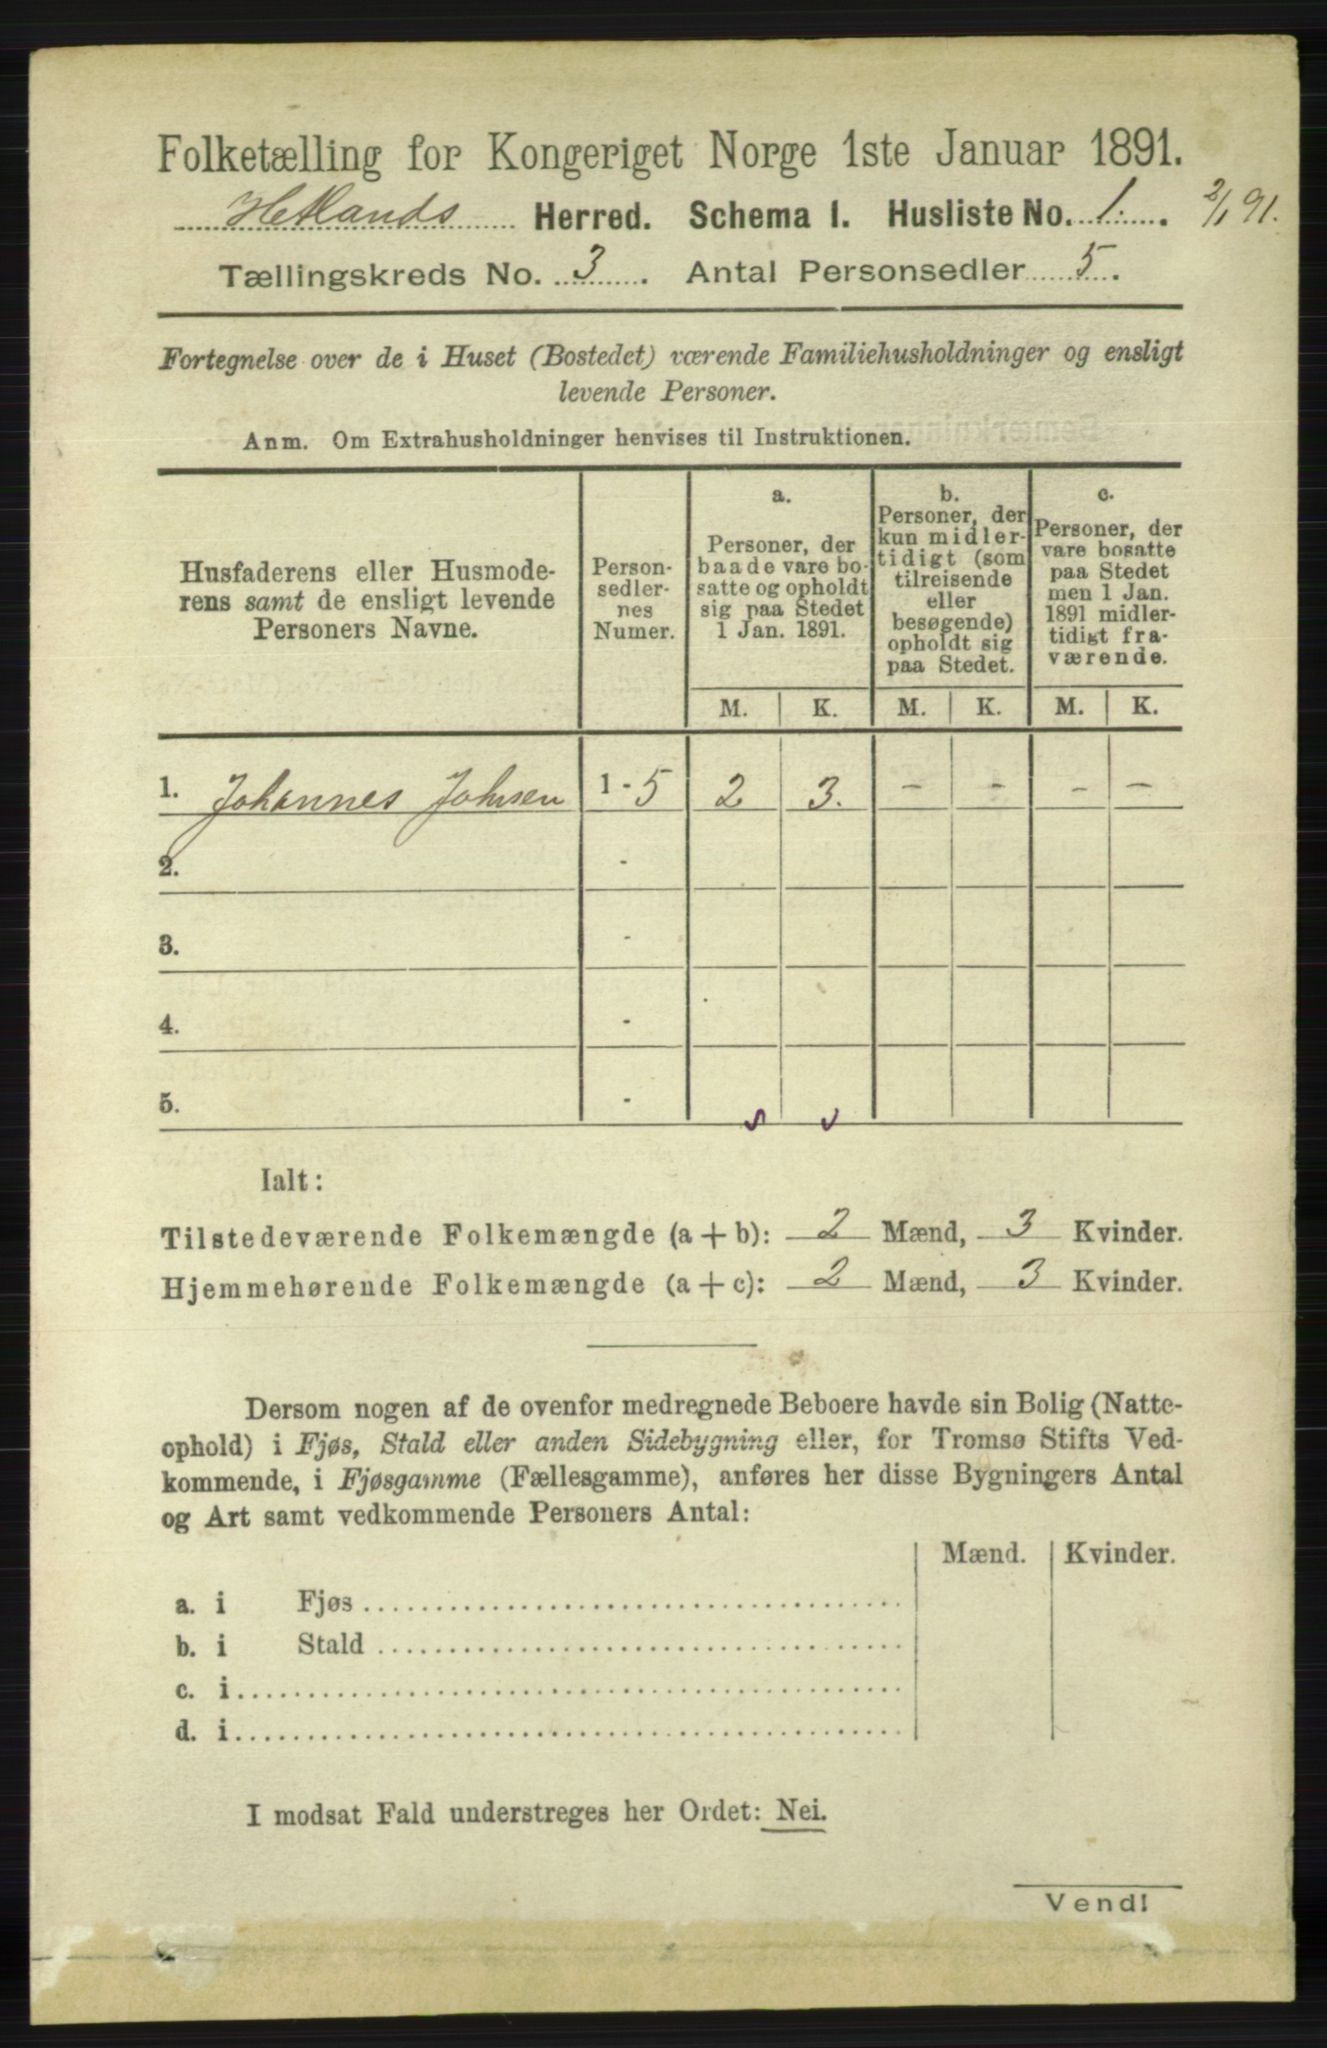 Folketælling for Kongeriget Norge 1ste Januar 1891.
Hetlands Herred. Schema 1. Husliste No. 1. 2/1 91.
Tællingskreds No. 3. Antal Personsedler 5.
Fortegnelse over de i Huset (Bostedet) værende Familiehusholdninger og ensligt
levende Personer.
Anm. Om Extrahusholdninger henvises til Instruktionen.
Husfaderens eller Husmode-
rens samt de ensligt levende
Personers Navne.
Person-
sedler-
nes
Numer.
a.
Personer, der
baade vare bo-
satte og opholdt
sig paa Stedet
1 Jan. 1891.
b.
Personer, der
kun midler-
tidigt (som
tilreisende
eller
besøgende)
opholdt sig
paa Stedet.
c.
Personer, der
vare bosatte
paa Stedet
men 1 Jan.
1891 midler-
tidigt fra-
værende.
M. K. M. K. M. K.
1. Johannes Johnsen 1 - 5 2 3. - - - -
2. -
3. -
4. -
5. -
Ialt:
Tilstedeværende Folkemængde (a + b): 2 Mænd, 3 Kvinder.
Hjemmehørende Folkemængde (a + c): 2 Mænd, 3 Kvinder.
Dersom nogen af de ovenfor medregnede Beboere havde sin Bolig (Natte-
ophold) i Fjøs, Stald eller anden Sidebygning eller, for Tromsø Stifts Ved-
kommende, i Fjøsgamme (Fællesgamme), anføres her disse Bygningers Antal
og Art samt vedkommende Personers Antal:
Mænd. Kvinder.
a. i Fjøs
b. i Stald
c. i
d. i
I modsat Fald understreges her Ordet: Nei.
Vend!